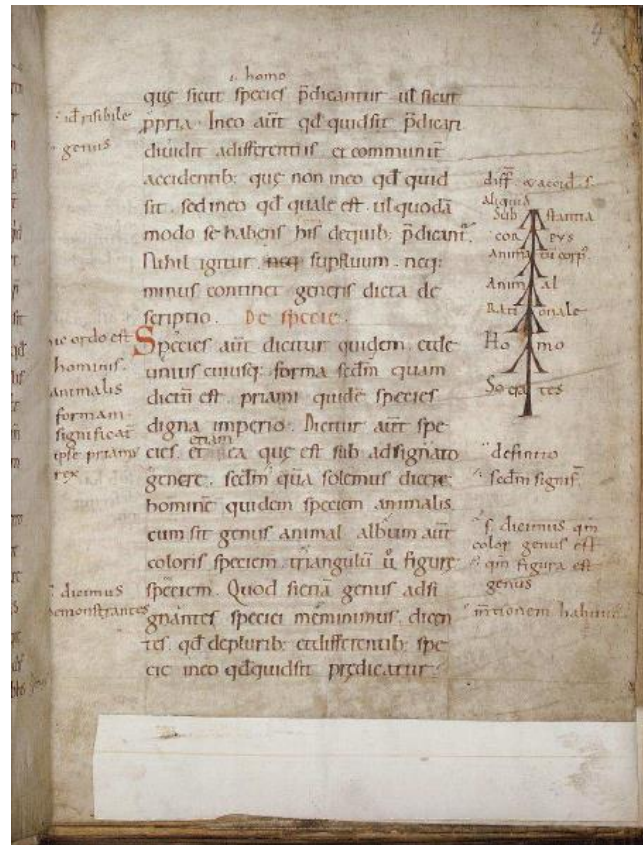 9
.i. homo
quę sicut species p̄dicantur ul sicut
ꝓpria. Ineo aut̄ qđ quidsit p̄dicari
diuidit adifferentiis. et communit̄
accidentib; quę non ineo qđ quid
sit. sed ineo qđ quale est. ul quodā
modo se habens his dequib; p̄dicant᷑.
Nihil igitur supfluum. neq;
minus continet generis dicta de
scriptio. De specie.
Species aut̄ dicitur quidem. et de
unius cuiusq; forma scđm quam
dictū est. priami quidē species
digna imperio. Dicitur aut̄ spe
etiam
cies. et ea quę est sub adsignato
genere. scđm quā solemus dicere;
hominē quidem speciem animalis.
cum sit genus animal. album aut̄
coloris speciem. triangulū ů figurę
speciem. Quod si etiā genus adsi
gnantes speciei meminimus. dicen
tes. qđ depluribꝫ et differentib; spe
cie ineo qđquidsit prędicatur.
id risibile
genus
ordo est
hominis.
animalis
formam
significat̄
ipse priamus
rex
s. dicimus
demonstrantes
diff̄ accid̄. s.
aliquis
Sub stantia
cor pus
Anima tū corp᷒
Anim al
Rati onale
Ho mo
Socra tes
definitio
scđm signif̄.
s. dicimus qm̄
color genus est
qm̄ figura est
genus
m̄tionem habuim᷒